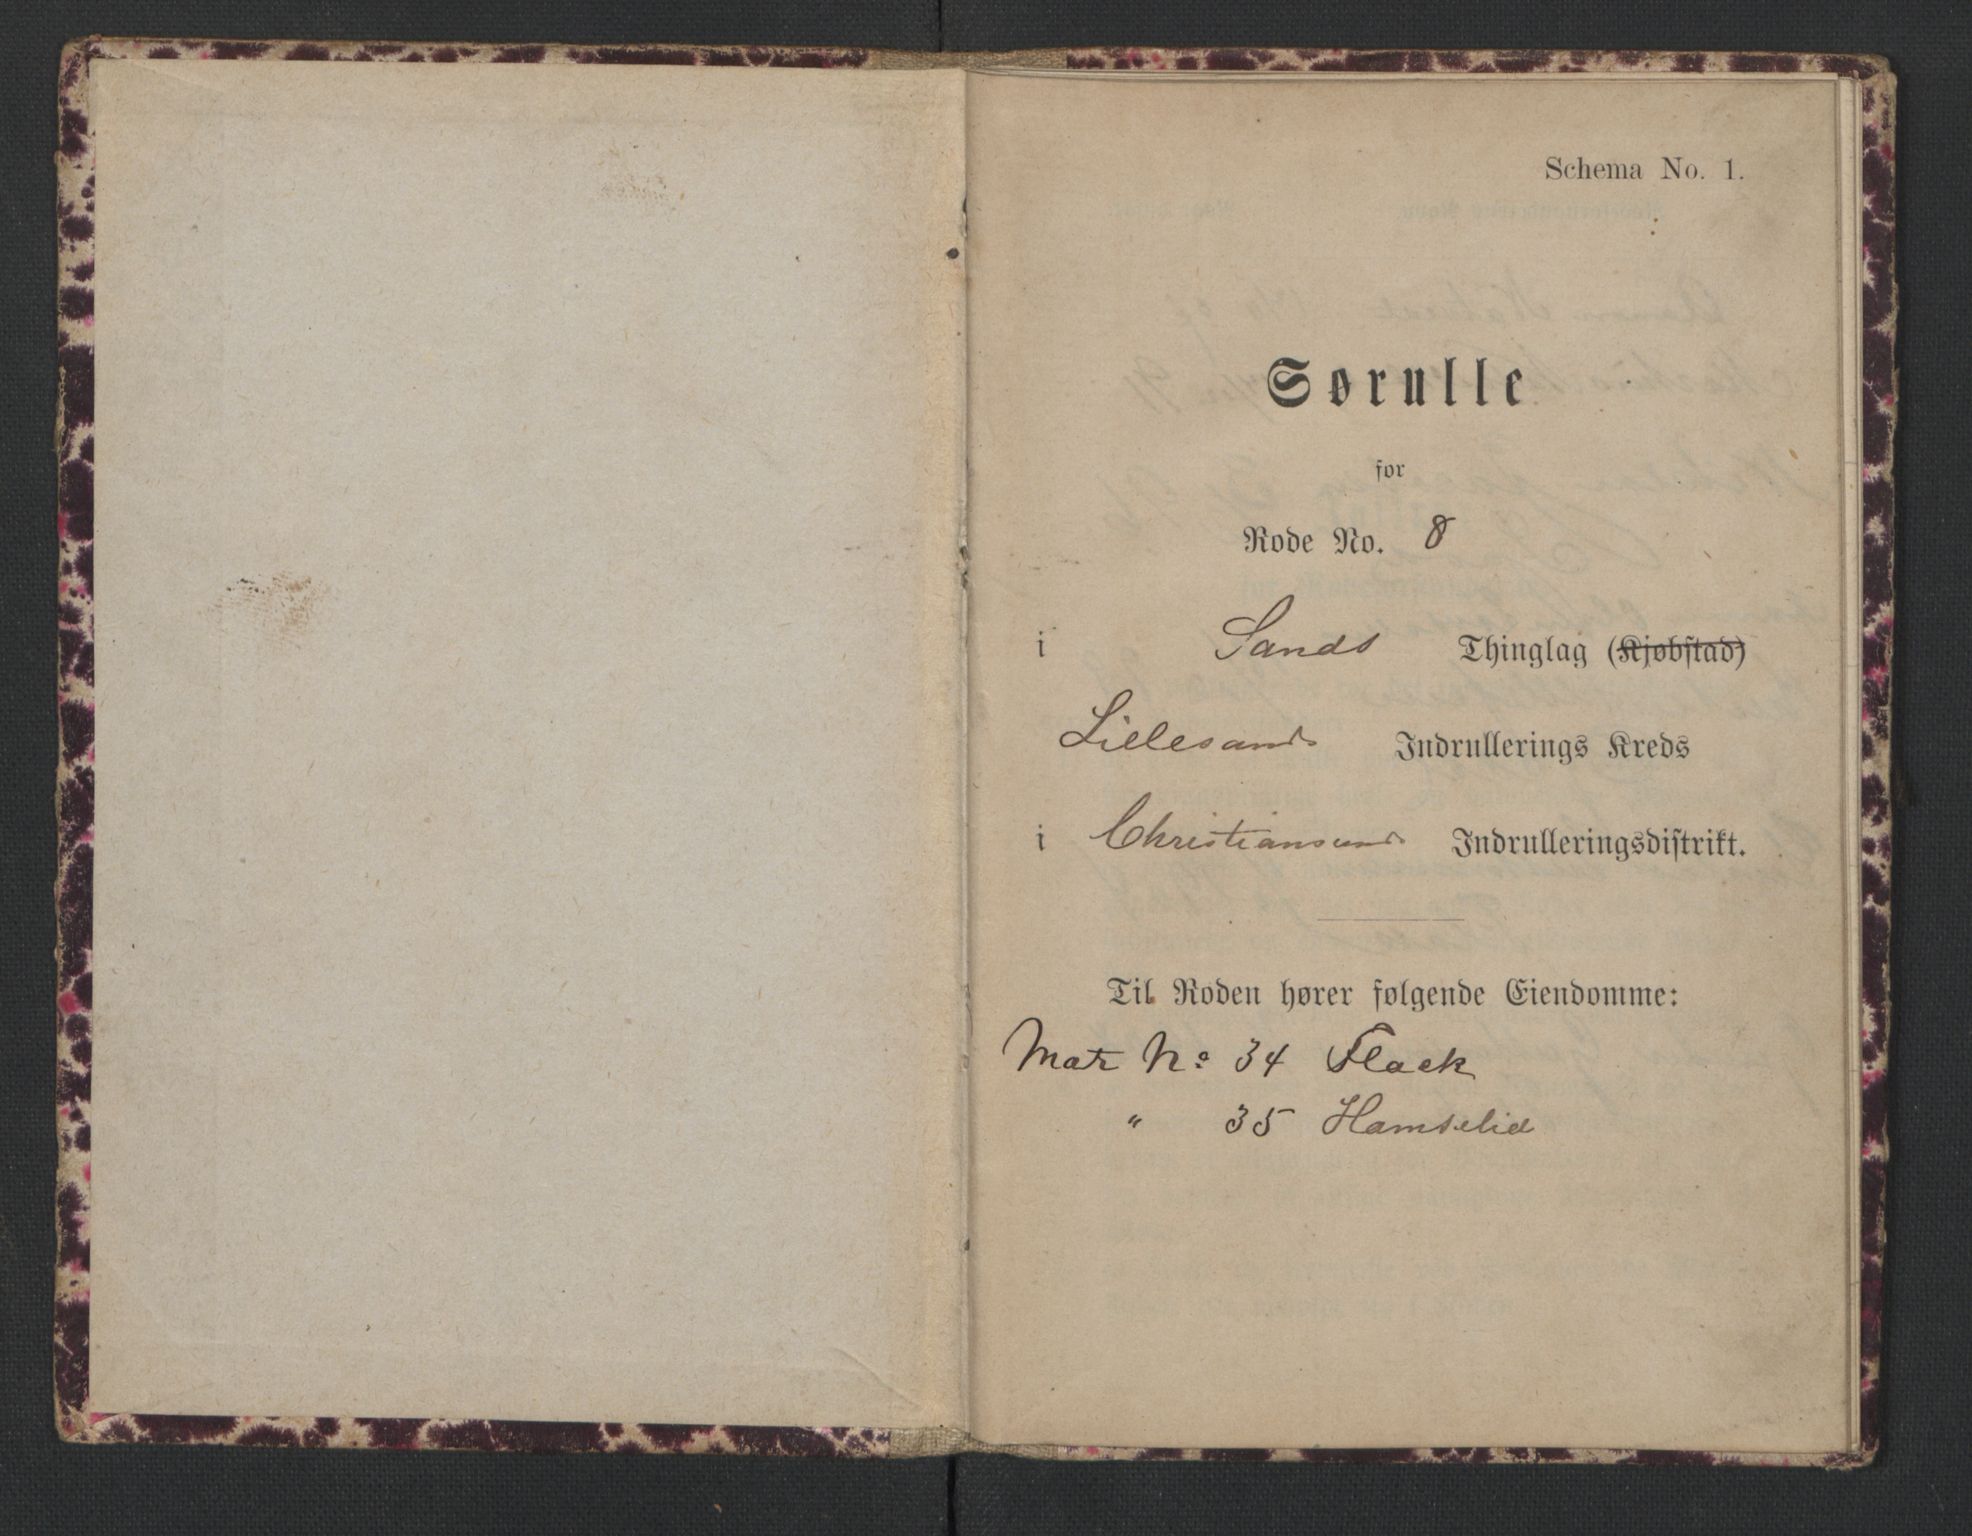 Schema No. 1.
Sørulle
for
Rode No. 8
i Sands Thinglag (Kjøbstad)
Lillesands Indrullerings Kreds
i Christianssands Indrulleringsdistrikt.
Til Roden hører følgende Eiendomme:
Matr No 34 Flack
" 35 Hamrelid